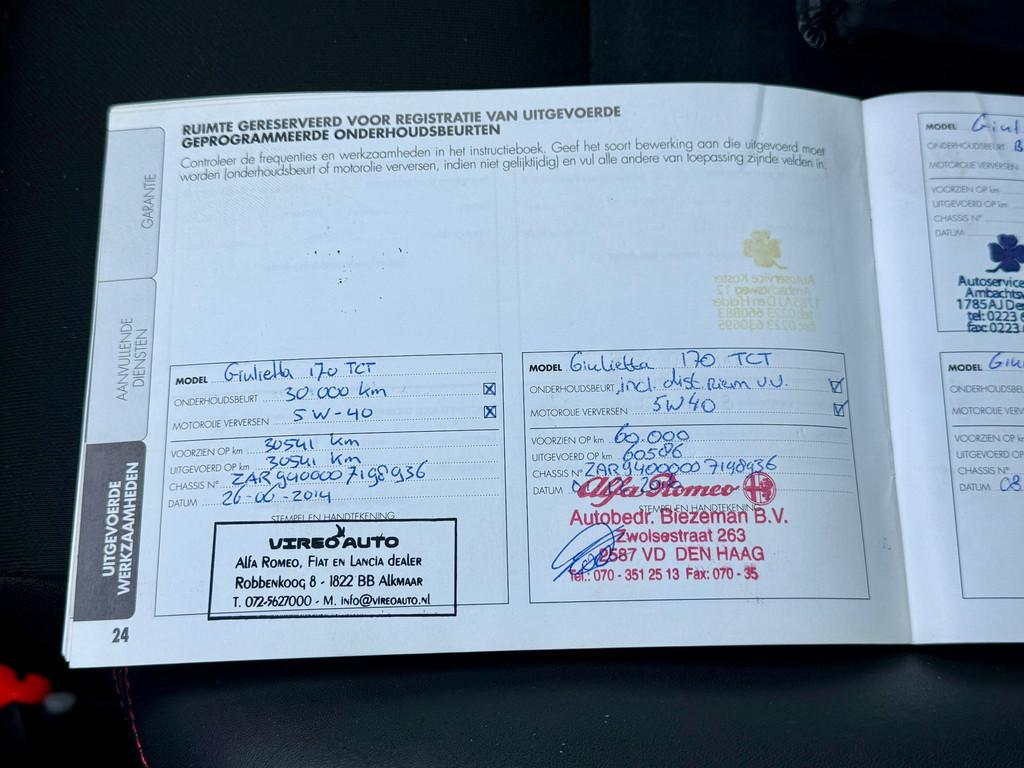 RUIMTE GERESERVEERD VOOR REGISTRATIE VAN UITGEVOERDE
GEPROGRAMMEERDE ONDERHOUDSBEURTEN
Controleer de frequenties en werkzaamheden in het instructieboek. Geef het soort bewerking aan die uitgevoerd moet
worden (onderhoudsbeurt of motorolie verversen, indien niet gelijktijdig) en vul alle andere van toepassing zijnde velden in.
GARANTIE
AANVULLENDE
DIENSTEN
UITGEVOERDE
WERKZAAMHEDEN
24
MODEL Giulietta 170 TCT
ONDERHOUDSBEURT 30.000 km
MOTOROLIE VERVERSEN 5W-40
VOORZIEN OP km 30541 km
UITGEVOERD OP km 30541 km
CHASSIS N° ZAR94000007198936
DATUM 26-06-2014
STEMPEL EN HANDTEKENING
VIREO AUTO
Alfa Romeo, Fiat en Lancia dealer
Robbenkoog 8 - 1822 BB Alkmaar
T. 072-5627000 - M. info@vireoauto.nl
Autoservice Koster
Ambachtsweg 12
1785 AJ Den Helder
tel: 0223 660883
fax: 0223 630695
MODEL Giulietta 170 TCT
ONDERHOUDSBEURT incl. dist. Riem v.v.
MOTOROLIE VERVERSEN 5W40
VOORZIEN OP km 60.000
UITGEVOERD OP km 60586
CHASSIS N° ZAR94000007198936
DATUM
STEMPEL EN HANDTEKENING
Alfa Romeo
Autobedr. Biezeman B.V.
Zwolsestraat 263
2587 VD DEN HAAG
Tel.: 070 - 351 25 13 Fax: 070 - 35
MODEL Giul
ONDERHOUDSBEURT B
MOTOROLIE VERVERSEN
VOORZIEN OP km
UITGEVOERD OP km
CHASSIS N°
DATUM
Autoservice
Ambachts
1785 AJ De
tel: 0223 6
fax: 0223
MODEL Giu
ONDERHOUDSBEU
MOTOROLIE VERV
VOORZIEN OP km
UITGEVOERD OP
CHASSIS N°
DATUM 08